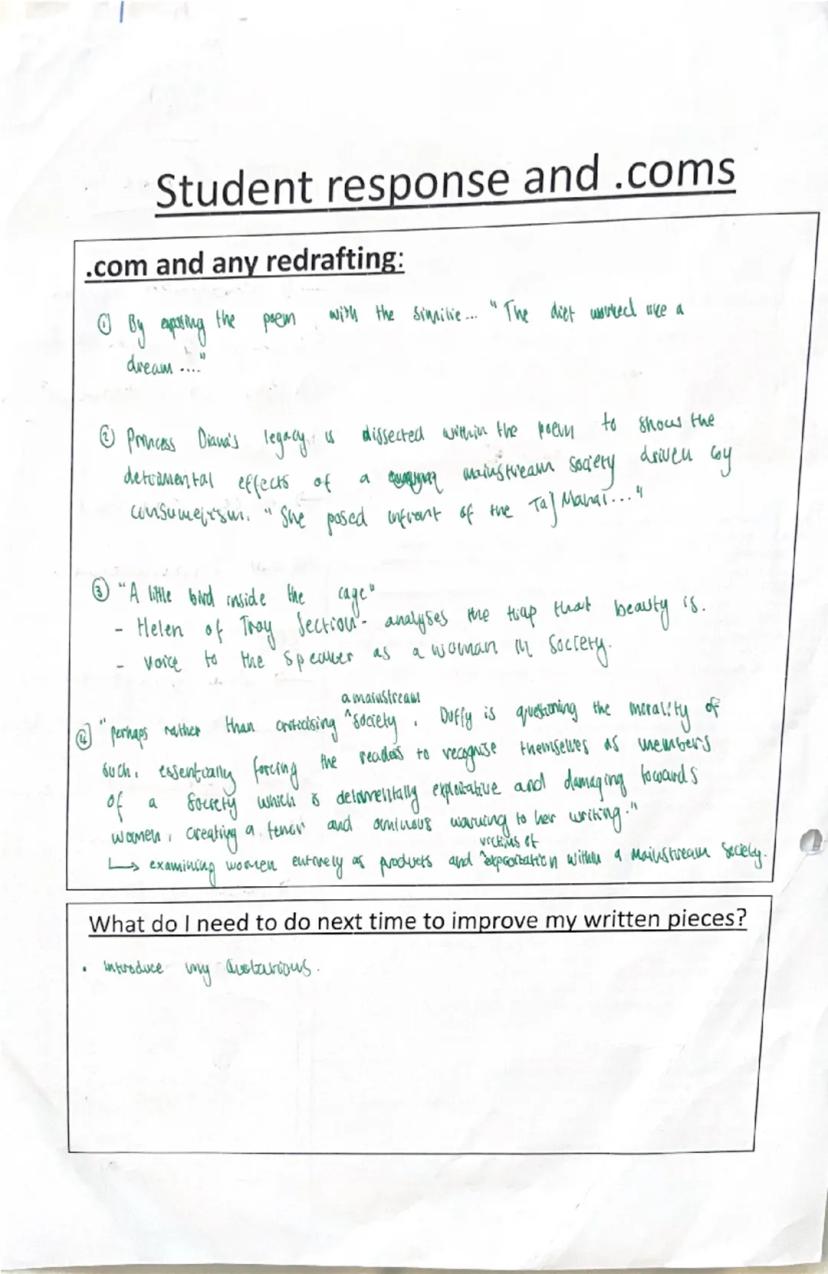 Student response and .coms
.com and any redrafting:
① By opening the poem with the similie... "The diet worked like a
dream ...."
② Princess Diana's legacy is dissected within the poem to shows the
detrimental effects of a mainstream society driven by
consumerism. "She posed infront of the Taj Mahal..."
③ "A little bird inside the cage"
- Helen of Troy Section - analyses the trap that beauty is.
- voice to the speaker as a woman in society.
a mainstream
④ "perhaps rather than criticising ^society, Duffy is questioning the morality of
such, essentially forcing the readers to recognise themselves as members
of a society which is detrimentally exploitative and damaging towards
women, creating a tenor and ominous warning to her writing."
victims of
↳ examining women entirely as products and ^exploitation within a mainstream society.
What do I need to do next time to improve my written pieces?
• introduce my quotations.